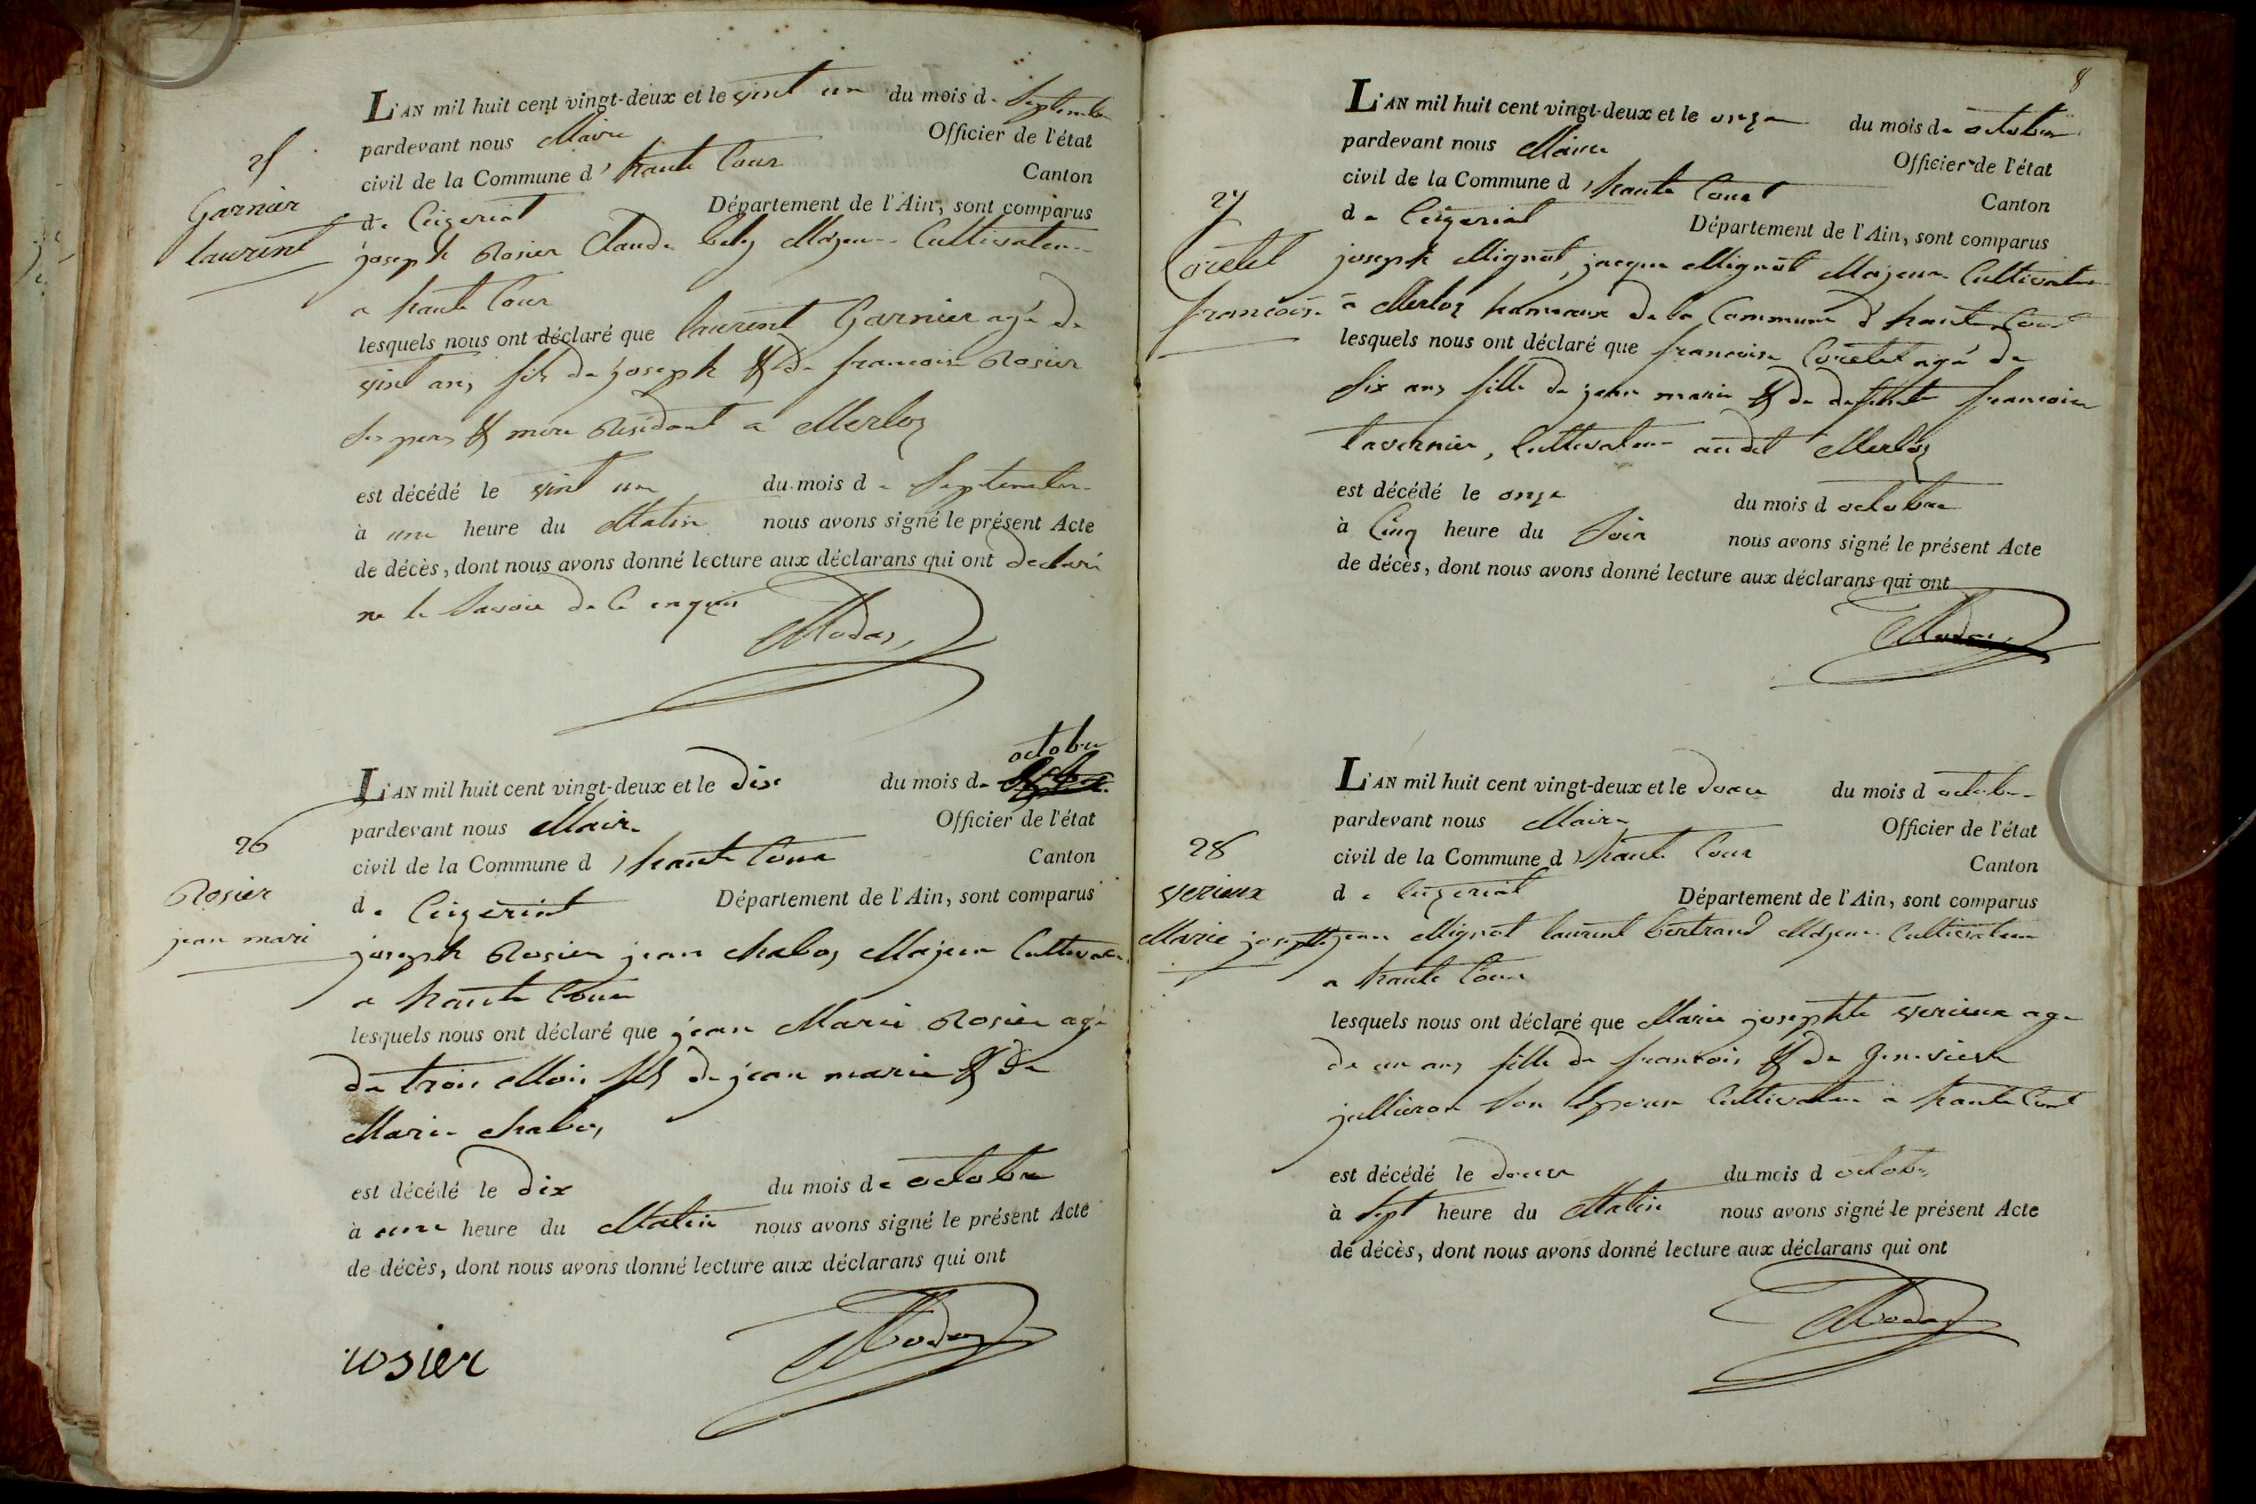 25
Garnier
laurent
L'AN mil huit cent vingt-deux et le vint un du mois de Septembre
pardevant nous Maire Officier de l'état
civil de la Commune d' haute Cour Canton
de Ceizeriat Département de l'Ain, sont comparus
joseph Rosier Claude Majeur Cultivateur
a haute Cour
lesquels nous ont déclaré que laurent Garnier agé de
vint ans fils de joseph & de francoise Rosier
ses pere & mere Résidant a Merloz
est décédé le vint un du mois de Septembre
à une heure du Matin nous avons signé le présent Acte
de décès, dont nous avons donné lecture aux déclarans qui ont declaré
ne le Savoir de ce enquis
Modas
26
Rosier
jean mari
L'AN mil huit cent vingt-deux et le dix du mois de octobre
pardevant nous Maire Officier de l'état
civil de la Commune d haute Cour Canton
de Ceizeriat Département de l'Ain, sont comparus
joseph Rosier jean Chabos Majeur Cultivateur
a haute Cour
lesquels nous ont déclaré que jean Marie Rosier agé
de trois Mois fils de jean marie & de
Marie Chabos
est décédé le dix du mois de octobre
à une heure du Matin nous avons signé le présent Acte
de décès, dont nous avons donné lecture aux déclarans qui ont
rosier Modas
8
27
Coretet
francoise
L'AN mil huit cent vingt-deux et le onze du mois de octobre
pardevant nous Maire Officier de l'état
civil de la Commune d haute Cour Canton
de Ceizeriat Département de l'Ain, sont comparus
joseph Mignot, jacque Mignot Majeur Cultivateur
a Merloz hameaux de la Commune d'haute Cour
lesquels nous ont déclaré que francoise Coretet agé de
Six ans fille de jean marie & de defunte francoise
tavernier, Cultivateur audit Merloz
est décédé le onze du mois d octobre
à Cinq heure du Soir nous avons signé le présent Acte
de décès, dont nous avons donné lecture aux déclarans qui ont
Modas
28
verieux
Marie josephte
L'AN mil huit cent vingt-deux et le douze du mois d octobre
pardevant nous Maire Officier de l'état
civil de la Commune d haute Cour Canton
de Ceizeriat Département de l'Ain, sont comparus
jean Mignot laurent bertrand Majeur Cultivateur
a haute Cour
lesquels nous ont déclaré que Marie josephte verieux age
de un ans fille de francois & de Genevieve
jullieron Son Epouse Cultivateur a haute Cour
est décédé le douze du mois d octobre
à Sept heure du Matin nous avons signé le présent Acte
de décès, dont nous avons donné lecture aux déclarans qui ont
Modas